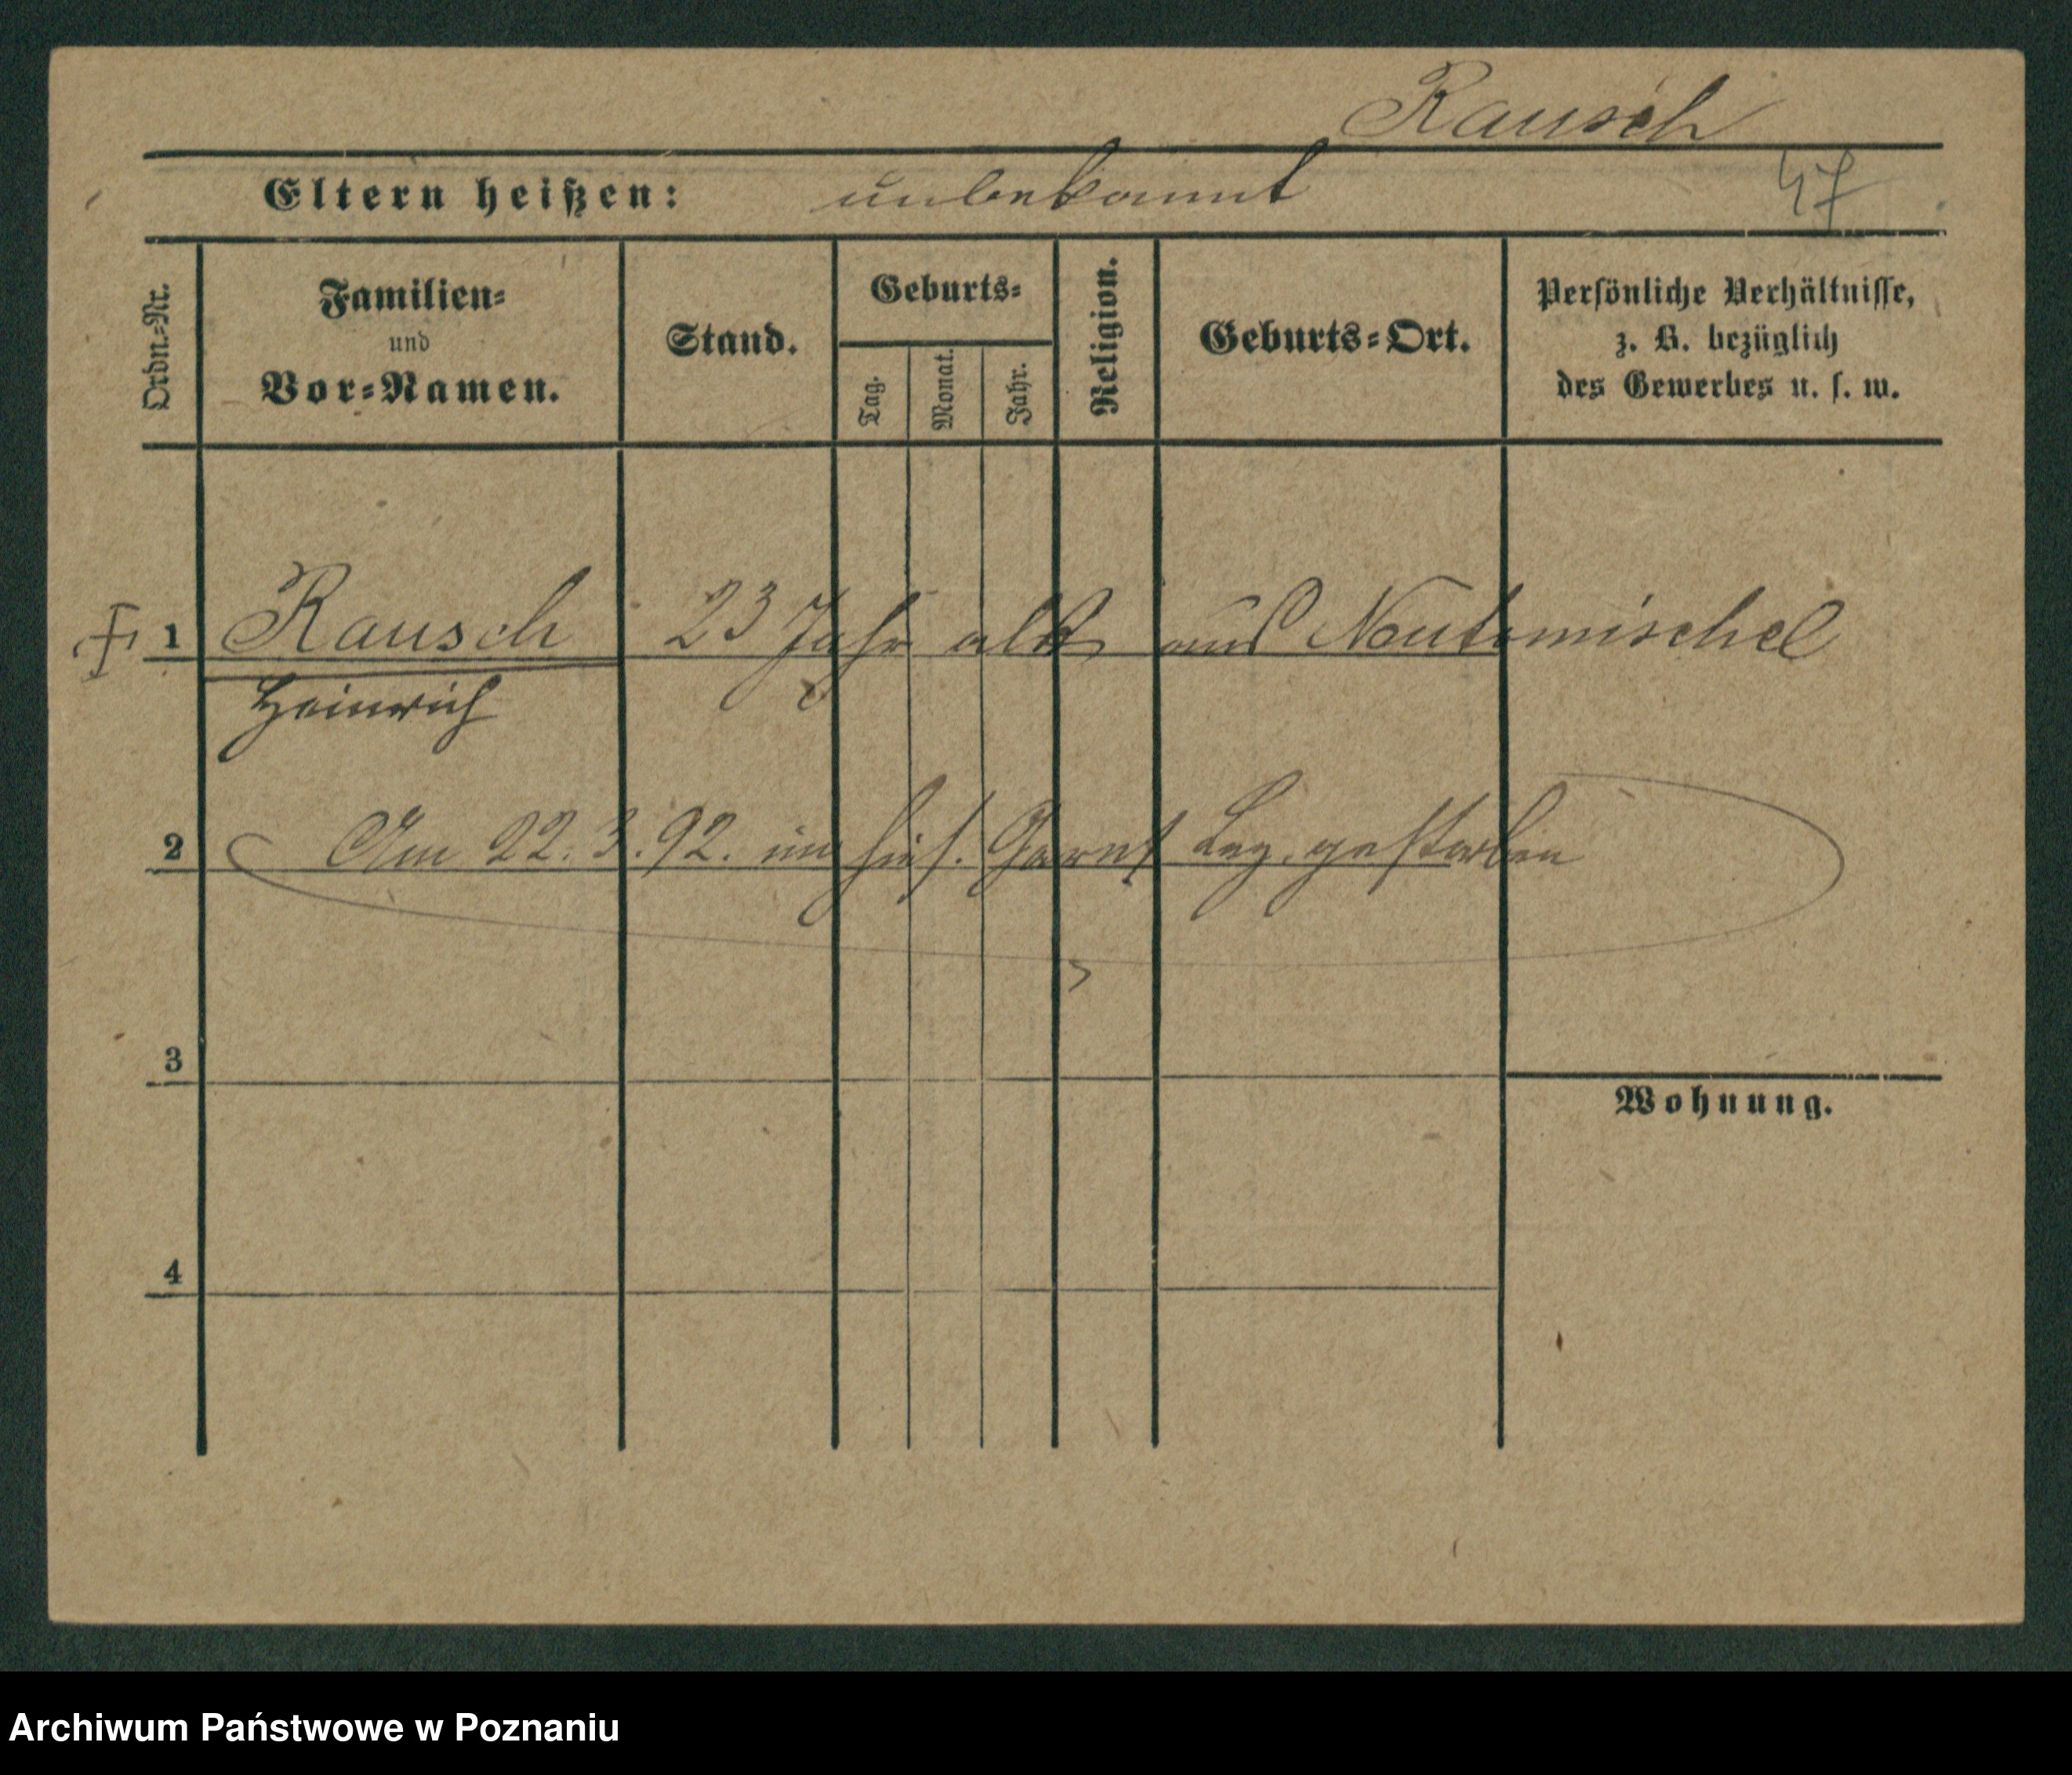 Rausch
Eltern heißen: unbekannt 47
Ordn.=Nr.
Familien=
und
Vor=Namen.
Stand.
Geburts=
Tag.
Monat.
Jahr.
Religion.
Geburts=Ort.
Persönliche Verhältnisse,
z. B. bezüglich
des Gewerbes u. s. w.
1 Rausch 23 Jahr alt aus Neutomischel
Heinrich
2 Am 22.3.92. im hies. Garns Laz. gestorben
3
Wohnung.
4
Archiwum Państwowe w Poznaniu